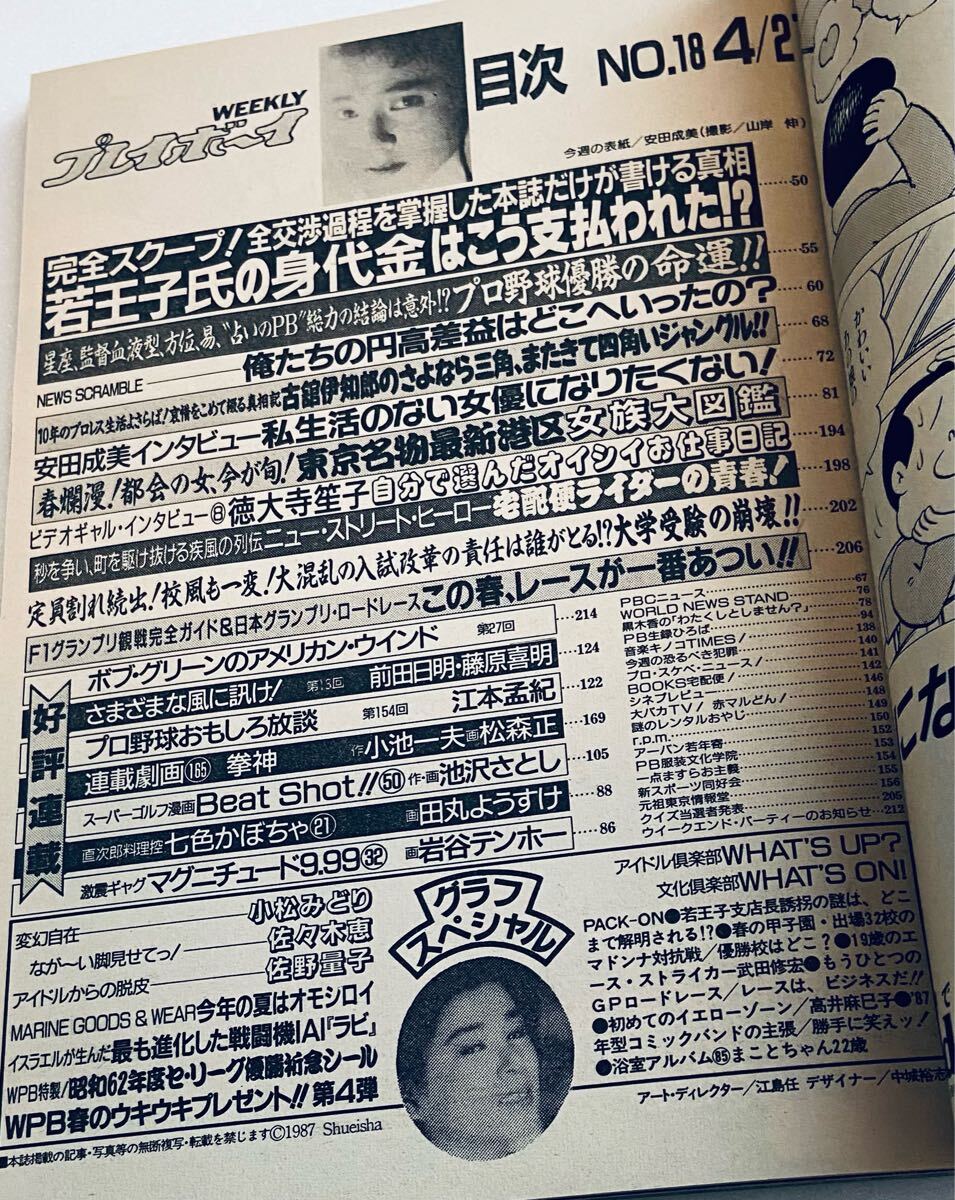 WEEKLY
プレイボーイ
目次 NO.18 4/27
今週の表紙/安田成美(撮影/山岸 伸)
完全スクープ!全交渉過程を掌握した本誌だけが書ける真相
若王子氏の身代金はこう支払われた!? 50
星座、監督血液型、方位、易、“占いのPB”総力の結論は意外!?プロ野球優勝の命運!! 55
NEWS SCRAMBLE 俺たちの円高差益はどこへいったの? 60
10年のプロレス生活よさらば!哀惜をこめて綴る真相記 古舘伊知郎のさよなら三角、またきて四角いジャングル!! 68
安田成美インタビュー 私生活のない女優になりたくない! 72
春爛漫!都会の女、今が旬!東京名物最新港区女族大図鑑 81
ビデオギャル・インタビュー⑧徳大寺笙子 自分で選んだオイシイお仕事日記 194
秒を争い、町を駆け抜ける疾風の列伝 ニュー・ストリート・ヒーロー 宅配便ライダーの青春! 198
定員割れ続出!校風も一変!大混乱の入試改革の責任は誰がとる!?大学受験の崩壊!! 202
F1グランプリ観戦完全ガイド&日本グランプリ・ロードレース この春、レースが一番あつい!! 206
好評連載
ボブ・グリーンのアメリカン・ウインド 第27回 214
さまざまな風に訊け! 第13回 前田日明・藤原喜明 124
プロ野球おもしろ放談 第154回 江本孟紀 122
連載劇画(165) 拳神 作 小池一夫 画 松森正 169
スーパーゴルフ漫画 Beat Shot!!(50) 作・画 池沢さとし 105
直次郎料理控 七色かぼちゃ(21) 画 田丸ようすけ 88
激震ギャグ マグニチュード9.99(32) 画 岩谷テンホー 86
PBCニュース 67
WORLD NEWS STAND 76
黒木香の「わたくしとしません?」 78
PB生録ひろば 94
音楽キノコTIMES! 138
今週の恐るべき犯罪 140
プロ・スケベ・ニュース! 141
BOOKS宅配便! 142
シネプレビュー 146
大バカTV! 赤マルどん! 148
謎のレンタルおやじ 149
r.p.m. 150
アーバン若年寄 152
PB服装文化学院 153
一点ますらお主義 154
新スポーツ同好会 155
元祖東京情報堂 156
クイズ当選者発表 205
ウイークエンド・パーティーのお知らせ 212
変幻自在 小松みどり
なが〜い脚見せてっ! 佐々木恵
アイドルからの脱皮 佐野量子
MARINE GOODS & WEAR 今年の夏はオモシロイ
イスラエルが生んだ 最も進化した戦闘機IAI『ラビ』
WPB特製/昭和62年度セ・リーグ優勝祈念シール
WPB春のウキウキプレゼント!! 第4弾
グラフスペシャル
アイドル倶楽部WHAT'S UP?
文化倶楽部WHAT'S ON!
PACK-ON●若王子支店長誘拐の謎は、どこ
まで解明される!?●春の甲子園・出場32校の
マドンナ対抗戦/優勝校はどこ?●19歳のエ
ース・ストライカー武田修宏●もうひとつの
GPロードレース/レースは、ビジネスだ!!
●初めてのイエローゾーン/高井麻巳子●'87
年型コミックバンドの主張/勝手に笑えッ!
●浴室アルバム(85)まことちゃん22歳
アート・ディレクター/江島任 デザイナー/中城裕志
■本誌掲載の記事・写真等の無断複写・転載を禁じます©1987 Shueisha
かわいい